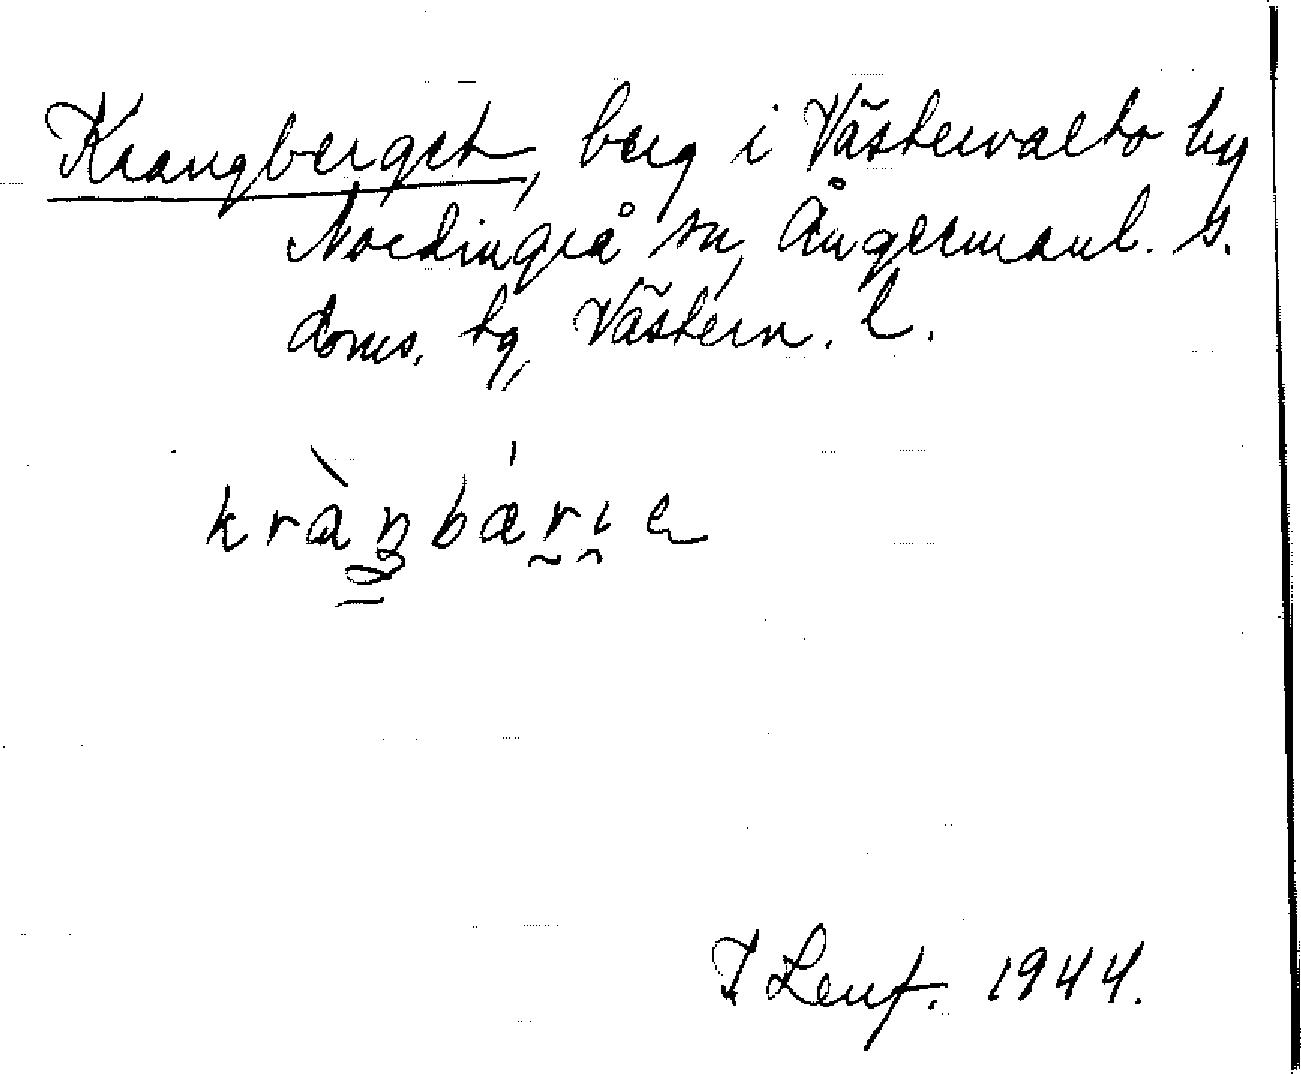 Krangberget, berg i Västervalto by
Nordingrå sn, Ångermanl. s.
doms. tg, Västern. l.
kràŋbáriɐ
I Lenf. 1944.